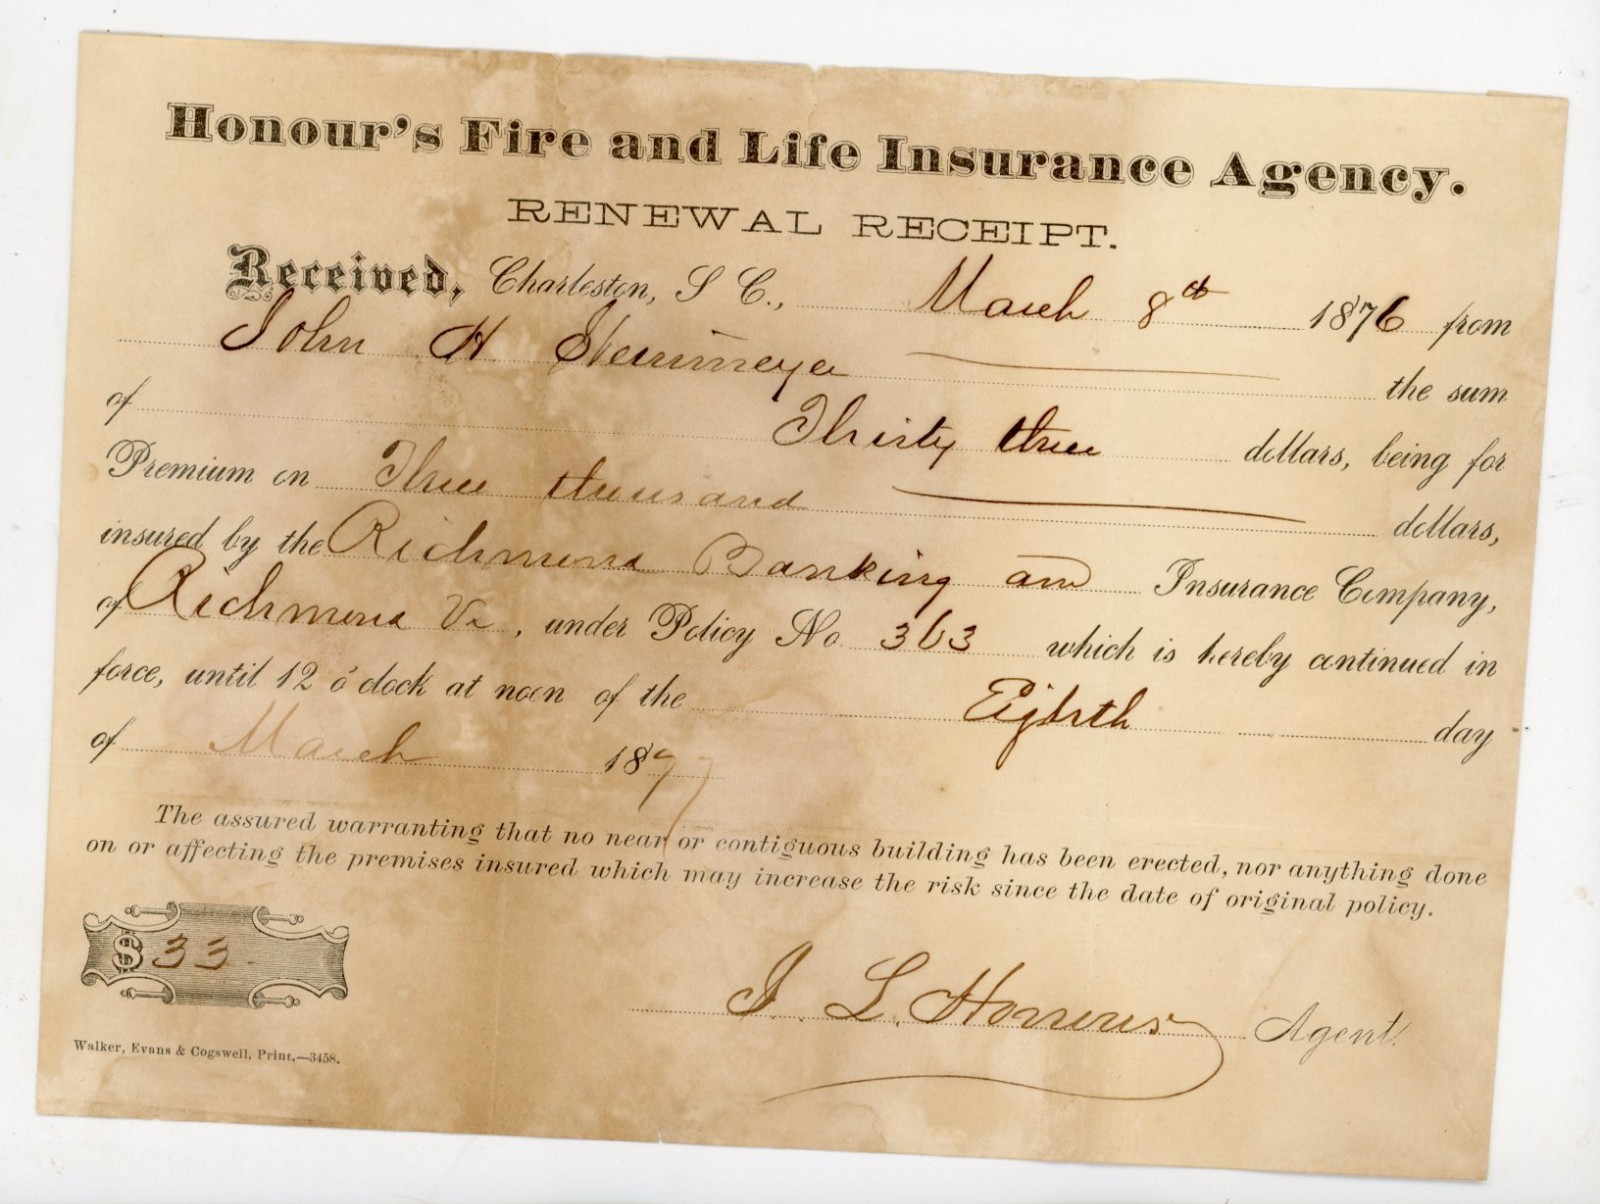 Honour's Fire and Life Insurance Agency.
RENEWAL RECEIPT.
Received, Charleston, S C., March 8th 1876 from
John H the sum
of Thirty three dollars, being for
Premium on Three thousand dollars,
insured by the Richmond Banking and Insurance Company,
of Richmond Va, under Policy No. 363 which is hereby continued in
force, until 12 o'clock at noon of the Eighth day
of March 1877
The assured warranting that no near or contiguous building has been erected, nor anything done
on or affecting the premises insured which may increase the risk since the date of original policy.
$ 33
J. L. Honour Agent.
Walker, Evans & Cogswell, Print,—3458.